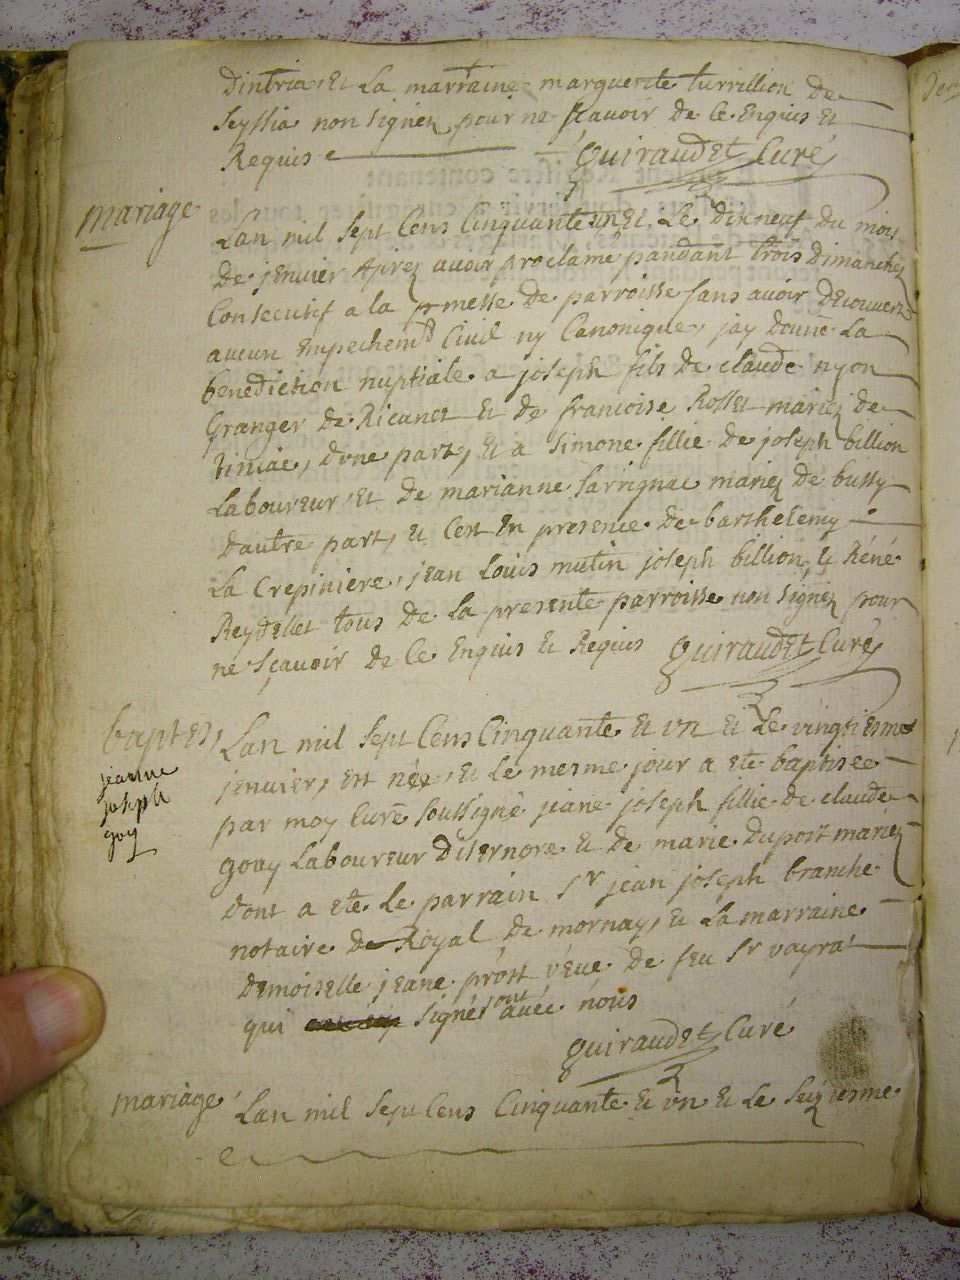 Dintria et La marraine marguerite turrillion de
Seyssia non signéz pour ne scavoir de Ce Enquis et
Requis Guiraudet Curé
mariage
Lan mil sept Cens Cinquante un et Le dix neuf du mois
De jenvier Aprez avoir proclamé pandant trois Dimanchez
Consecutif a la messe de parroisse sans avoir Decouvert
aucun Empechemt Civil ny Canonique, jay donné La
benediction nuptiale a joseph fils de claude nyon
Granger de Ricanet et de francoise Rosset mariez de
d'une part, et a Simone fillie de joseph billion
Laboureur, et de marianne Sarrignac mariez de bussy
Dautre part, et Cest En presence de barthelemy
La Crepiniere, jean Louis mutin joseph billion, et Réné
Reydellet tous de La presente parroisse non signéz pour
ne Sçavoir de Ce Enquis et Requis Guiraudet Curé
baptes,
jeanne
joseph
goy
Lan mil sept Cens Cinquante et un et Le vingtiesme
jenvier, est née, et Le mesme jour a eté baptisée
par moy Curé soussigné jeane joseph fillie de claude
goay Laboureur Disernore et de marie Duport mariez
Dont a eté Le parrain Sr jean joseph branche
notaire Royal de mornay, et La marraine
Demoiselle jeane prost veuve de feu Sr vayrat
qui signés ont avec nous
Guiraudet Curé
mariage
Lan mil sept Cens Cinquante et un et Le Seiziesme